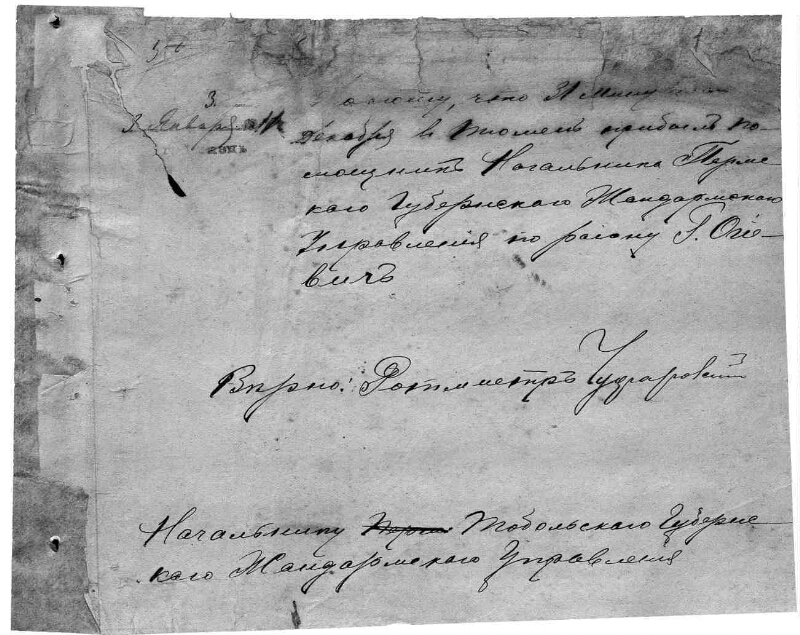 3.
3 Января
что 31 мину
декабря в Тюмень прибылъ по-
мощникъ Начальника Перм-
скаго Губернскаго Жандармскаго
Управления по району Г. Огіе-
вичъ
Вѣрно: Ротмистръ
Начальнику Тобольскаго Губернс-
каго Жандармскаго Управленія